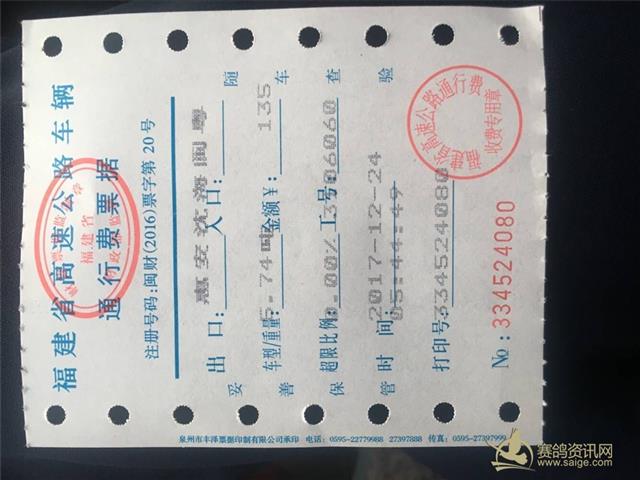 福建省高速公路车辆
通行费票据
注册号码:闽财(2016)票字第20号
出口: 惠安沈海 入口: 闽粤
车型/重量: 5.74吨 金额¥: 135
超限比例: 0.00% 工号: 3606060
时间: 2017-12-24
05:44:49
打印号: 334524080
No: 334524080
随车查验
妥善保管
福建省高速公路通行费
收费专用章
福建省
泉州市丰泽票据印制有限公司承印 电话: 0595-22779988 27397888 传真: 0595-27397999
赛鸽资讯网
www.saige.com